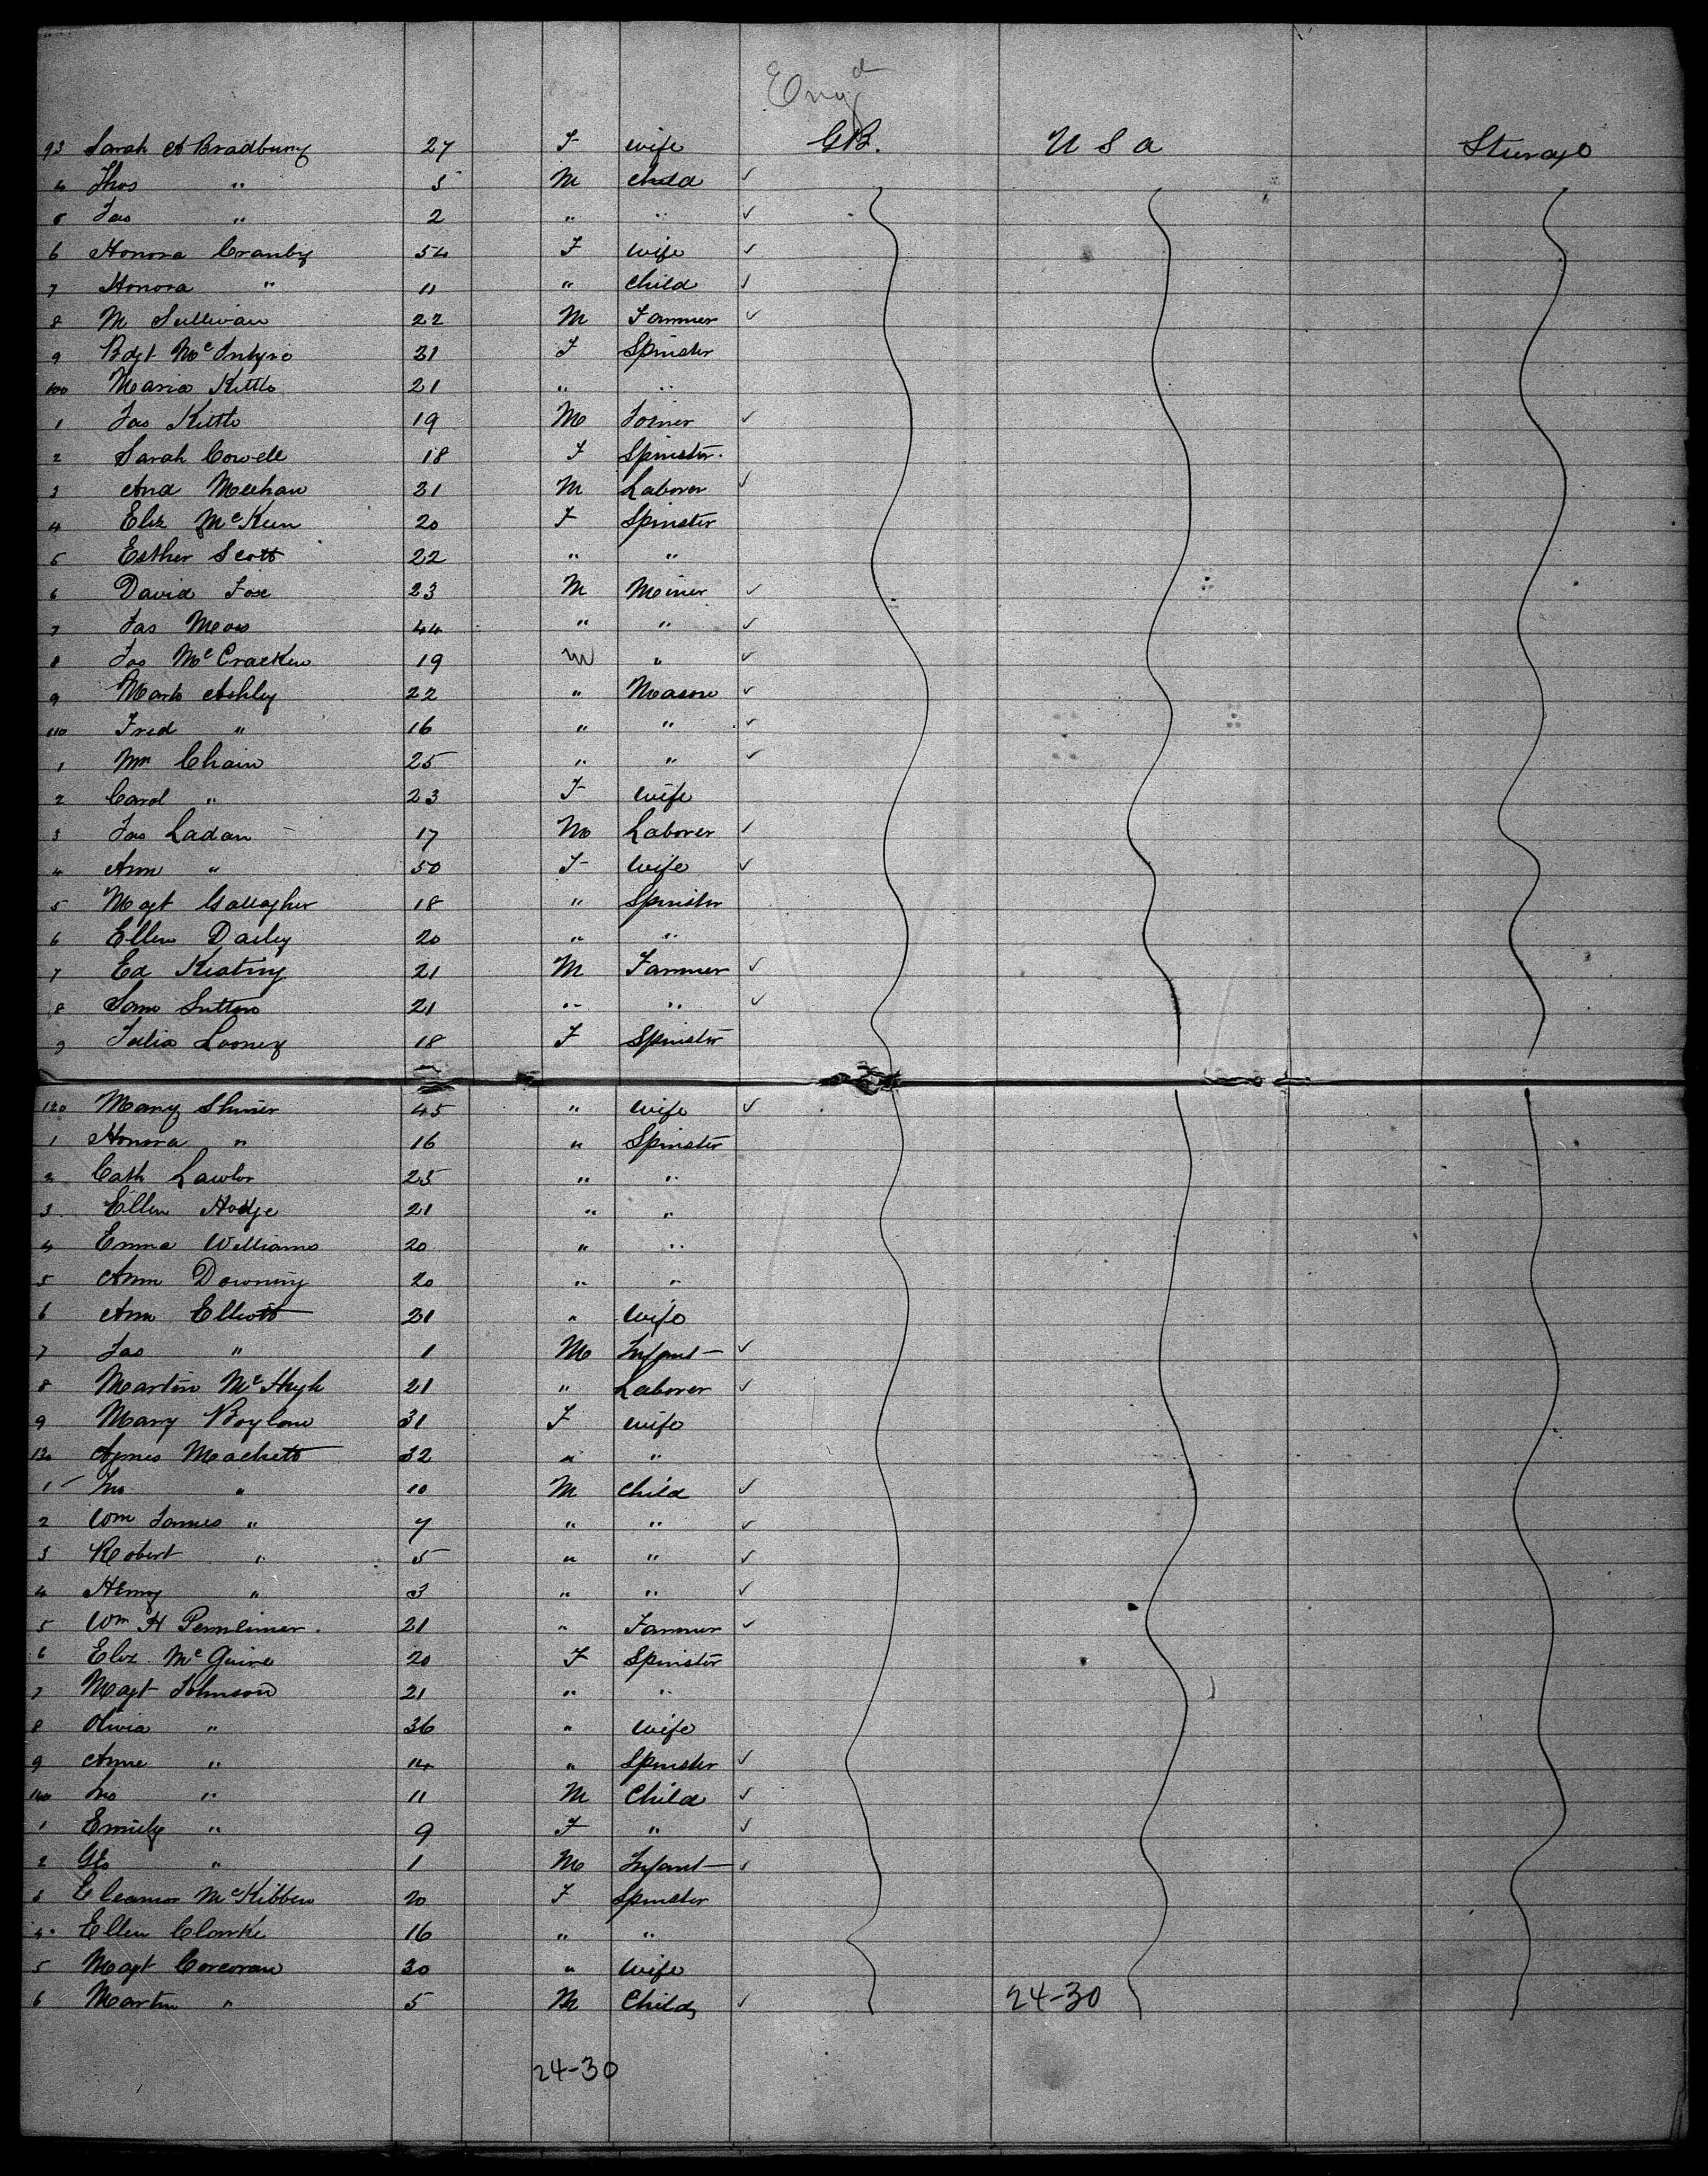 Eng d
93 Sarah A Bradbury 27 F wife GB. U S A Sturage
4 Thos " 5 M child ✓
5 Jas " 2 " " ✓
6 Honora Cranby 54 F wife ✓
7 Honora " 11 " child ✓
8 M Sullivan 22 M Farmer ✓
9 Bdgt McIntyre 21 F Spinster
100 Maria Kitto 21 " "
1 Jas Kitto 19 M Joiner ✓
2 Sarah Cowell 18 F Spinster.
3 And Meehan 31 M Laborer ✓
4 Eliz McKeen 20 F Spinster
5 Esther Scott 22 " "
6 David Fox 23 M Meiner ✓
7 Jas 44 " " ✓
8 Jas McCracken 19 M " ✓
9 Mark Ashley 22 " Mason ✓
110 Fred " 16 " " ✓
1 Wm Chain 25 " " ✓
2 Carol " 23 F wife
3 Jas Ladan 17 M Laborer ✓
4 Ann " 50 F wife ✓
5 Magt Gallagher 18 " Spinster
6 Ellen Dailey 20 " "
7 Ed Keating 21 M Farmer ✓
8 Sam Sutton 21 " " ✓
9 Julia Looney 18 F Spinster
120 Mary Shiner 45 " wife ✓
1 Honora " 16 " Spinster
2 Cath Lawlor 25 " "
3 Ellen Hodge 21 " "
4 Emma Williams 20 " "
5 Ann Downing 20 " "
6 Ann Elliott 31 " wife
7 Jas " 1 M Infant ✓
8 Martin McHugh 21 " Laborer ✓
9 Mary Boylan 31 F wife
130 Agnes Mackett 32 " "
1 Jno " 10 M Child ✓
2 Wm James " 7 " " ✓
3 Robert " 5 " " ✓
4 Henry " 3 " " ✓
5 Wm H 21 " Farmer ✓
6 Eliz McGuire 20 F Spinster
7 Magt Johnson 21 " "
8 Olivia " 36 " wife
9 Anne " 14 " Spinster ✓
140 Jno " 11 M Child ✓
1 Emily " 9 F " ✓
2 Geo " 1 M Infant ✓
3 Eleanor McKibben 20 F Spinster
4 Ellen Clarke 16 " "
5 Magt Corcoran 30 " wife
6 Martin " 5 M Child ✓ 24-30
24-30